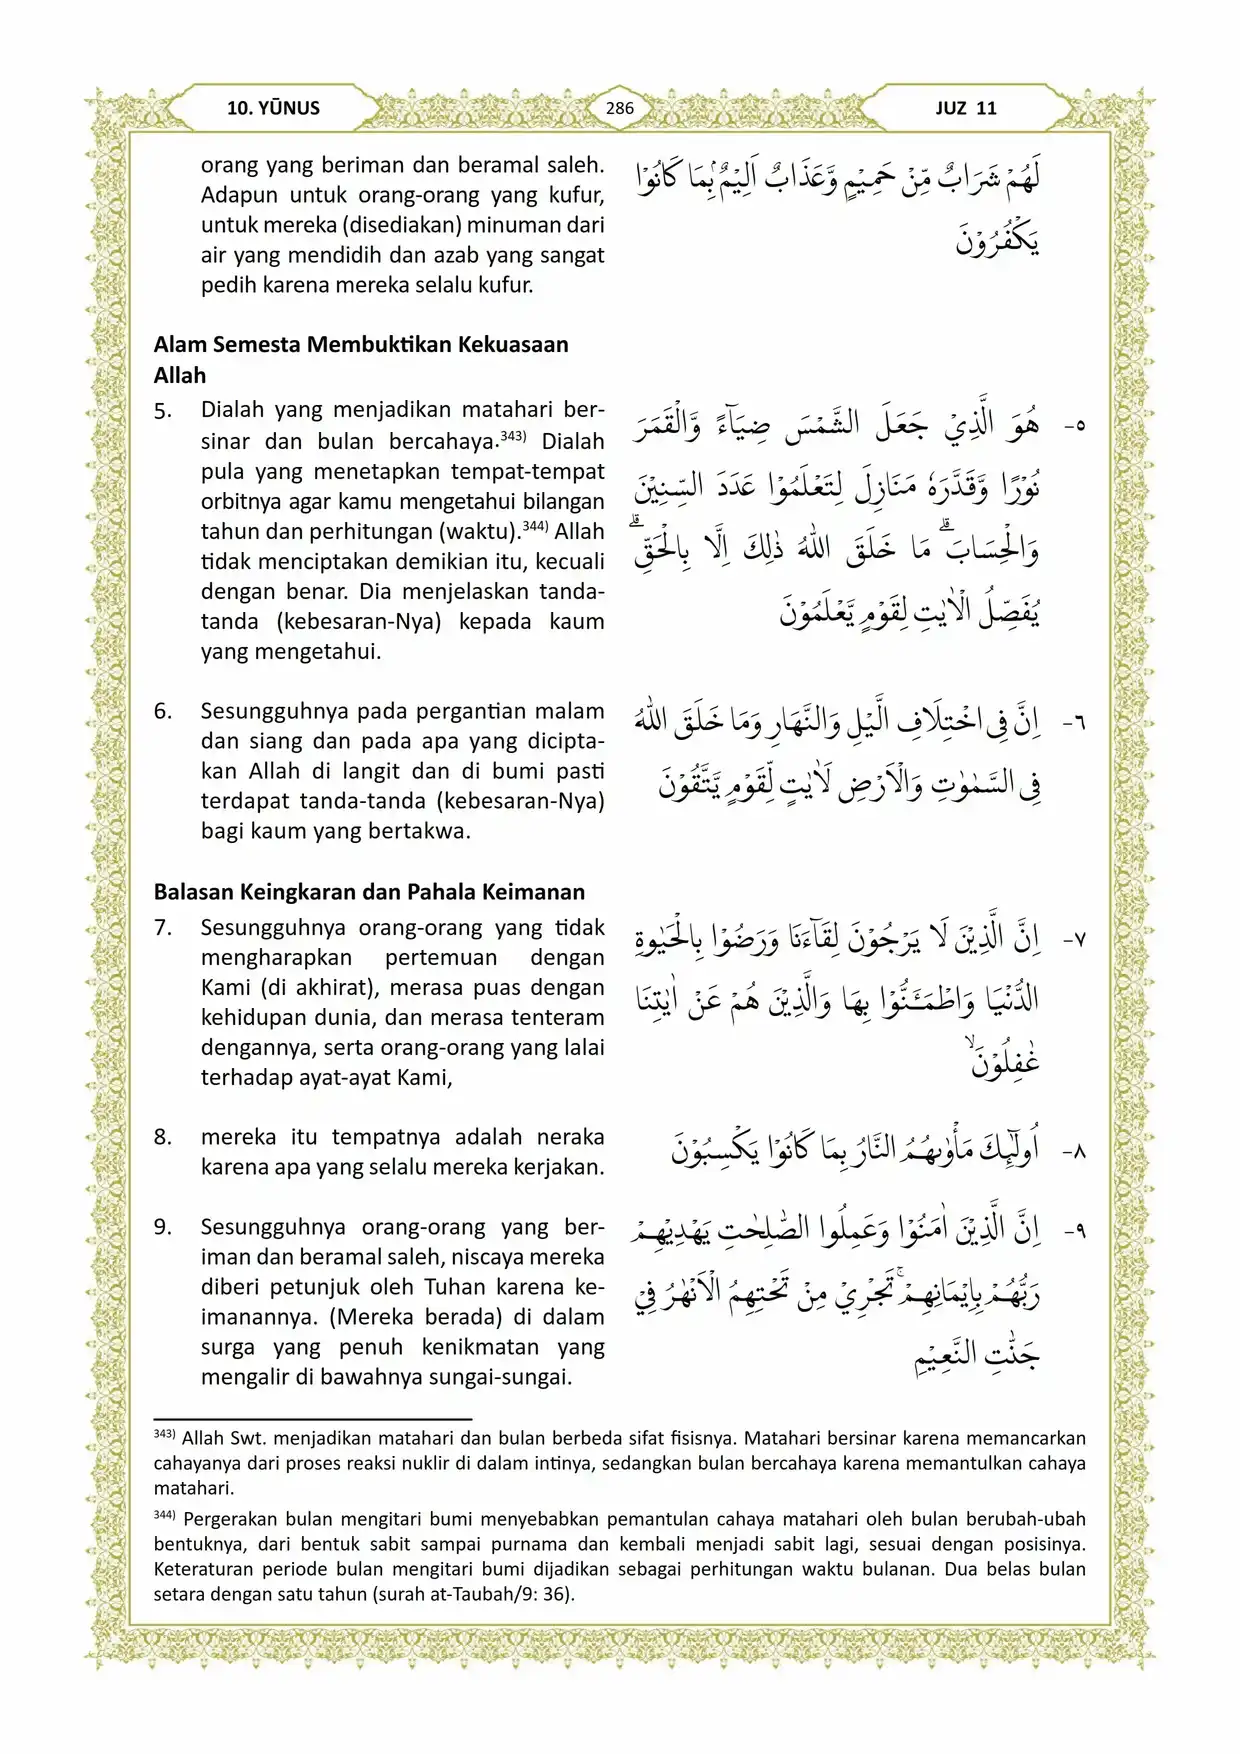 10. YŪNUS
286
JUZ 11
orang yang beriman dan beramal saleh.
Adapun untuk orang-orang yang kufur,
untuk mereka (disediakan) minuman dari
air yang mendidih dan azab yang sangat
pedih karena mereka selalu kufur.
لَهُمْ شَرَابٌ مِّنْ حَمِيْمٍ وَّعَذَابٌ اَلِيْمٌۢ بِمَا كَانُوْا
يَكْفُرُوْنَ
Alam Semesta Membuktikan Kekuasaan
Allah
5. Dialah yang menjadikan matahari ber-
sinar dan bulan bercahaya.343) Dialah
pula yang menetapkan tempat-tempat
orbitnya agar kamu mengetahui bilangan
tahun dan perhitungan (waktu).344) Allah
tidak menciptakan demikian itu, kecuali
dengan benar. Dia menjelaskan tanda-
tanda (kebesaran-Nya) kepada kaum
yang mengetahui.
٥- هُوَ الَّذِيْ جَعَلَ الشَّمْسَ ضِيَاۤءً وَّالْقَمَرَ
نُوْرًا وَّقَدَّرَهٗ مَنَازِلَ لِتَعْلَمُوْا عَدَدَ السِّنِيْنَ
وَالْحِسَابَۗ مَا خَلَقَ اللّٰهُ ذٰلِكَ اِلَّا بِالْحَقِّۗ
يُفَصِّلُ الْاٰيٰتِ لِقَوْمٍ يَّعْلَمُوْنَ
6. Sesungguhnya pada pergantian malam
dan siang dan pada apa yang dicipta-
kan Allah di langit dan di bumi pasti
terdapat tanda-tanda (kebesaran-Nya)
bagi kaum yang bertakwa.
٦- اِنَّ فِى اخْتِلَافِ الَّيْلِ وَالنَّهَارِ وَمَا خَلَقَ اللّٰهُ
فِى السَّمٰوٰتِ وَالْاَرْضِ لَاٰيٰتٍ لِّقَوْمٍ يَّتَّقُوْنَ
Balasan Keingkaran dan Pahala Keimanan
7. Sesungguhnya orang-orang yang tidak
mengharapkan pertemuan dengan
Kami (di akhirat), merasa puas dengan
kehidupan dunia, dan merasa tenteram
dengannya, serta orang-orang yang lalai
terhadap ayat-ayat Kami,
٧- اِنَّ الَّذِيْنَ لَا يَرْجُوْنَ لِقَاۤءَنَا وَرَضُوْا بِالْحَيٰوةِ
الدُّنْيَا وَاطْمَـَٔنُّوْا بِهَا وَالَّذِيْنَ هُمْ عَنْ اٰيٰتِنَا
غٰفِلُوْنَۙ
8. mereka itu tempatnya adalah neraka
karena apa yang selalu mereka kerjakan.
٨- اُولٰۤىِٕكَ مَأْوٰىهُمُ النَّارُ بِمَا كَانُوْا يَكْسِبُوْنَ
9. Sesungguhnya orang-orang yang ber-
iman dan beramal saleh, niscaya mereka
diberi petunjuk oleh Tuhan karena ke-
imanannya. (Mereka berada) di dalam
surga yang penuh kenikmatan yang
mengalir di bawahnya sungai-sungai.
٩- اِنَّ الَّذِيْنَ اٰمَنُوْا وَعَمِلُوا الصّٰلِحٰتِ يَهْدِيْهِمْ
رَبُّهُمْ بِاِيْمَانِهِمْۚ تَجْرِيْ مِنْ تَحْتِهِمُ الْاَنْهٰرُ فِيْ
جَنّٰتِ النَّعِيْمِ
343) Allah Swt. menjadikan matahari dan bulan berbeda sifat fisisnya. Matahari bersinar karena memancarkan
cahayanya dari proses reaksi nuklir di dalam intinya, sedangkan bulan bercahaya karena memantulkan cahaya
matahari.
344) Pergerakan bulan mengitari bumi menyebabkan pemantulan cahaya matahari oleh bulan berubah-ubah
bentuknya, dari bentuk sabit sampai purnama dan kembali menjadi sabit lagi, sesuai dengan posisinya.
Keteraturan periode bulan mengitari bumi dijadikan sebagai perhitungan waktu bulanan. Dua belas bulan
setara dengan satu tahun (surah at-Taubah/9: 36).